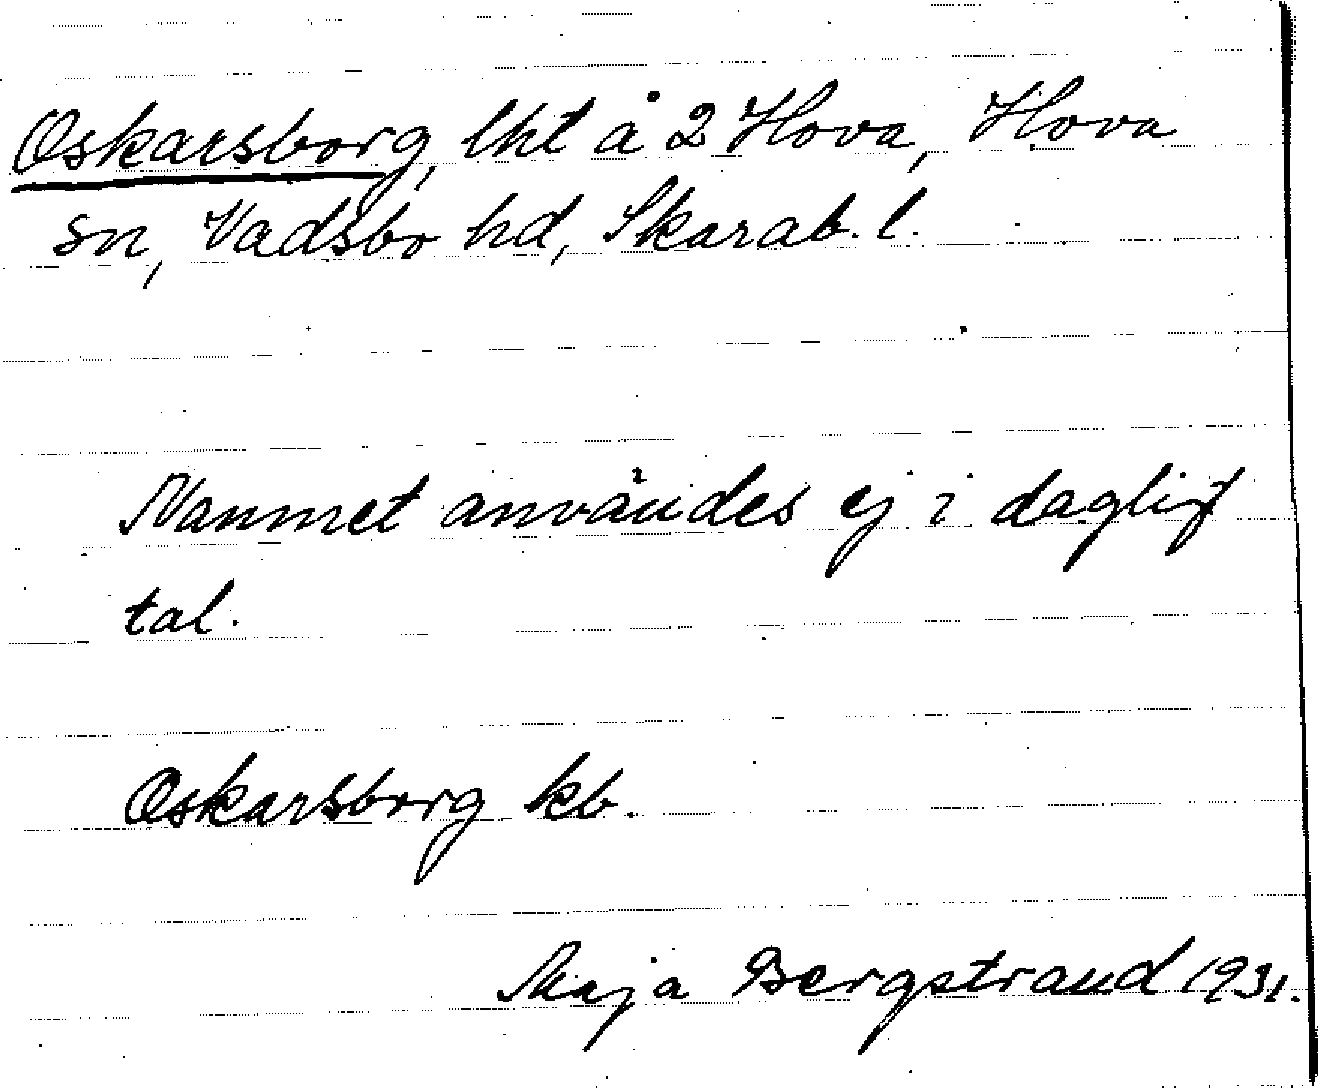 Oskarsborg, lht å 2 Hova, Hova
sn, Vadsbo hd, Skarab. l.
Namnet användes ej i dagligt
tal.
Oskarsborg kb.
Maja Bergstrand 1931.